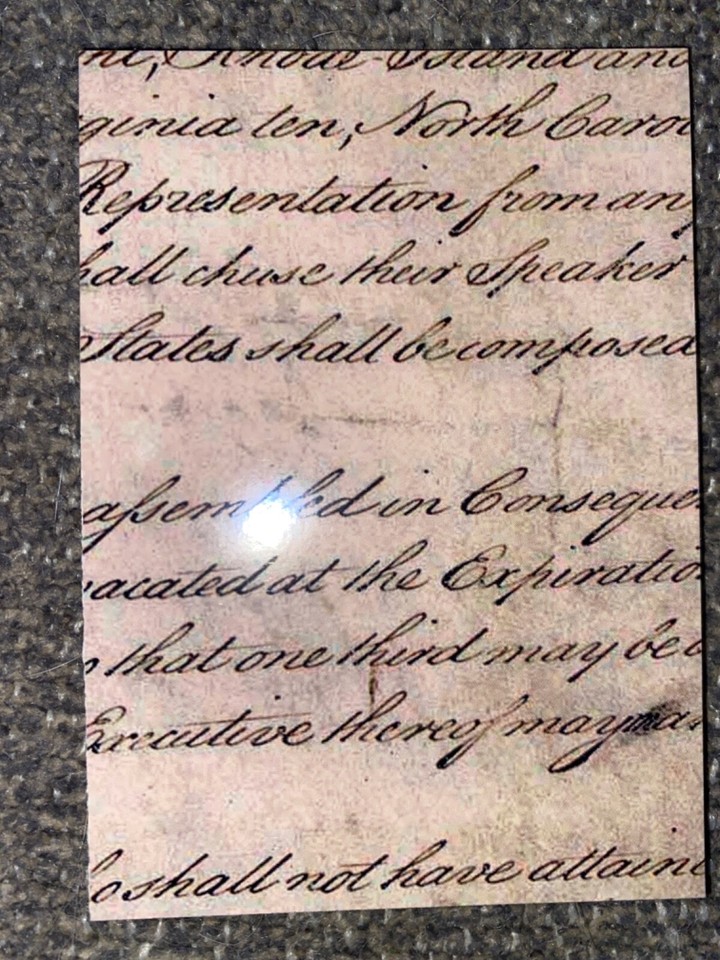 nt, Rhode-Island and
ginia ten, North Caro
Representation from any
hall chuse their Speaker
States shall be composed
assembled in Consequen
acated at the Expiratio
that one third may be
Executive thereof may ma
ho shall not have attain